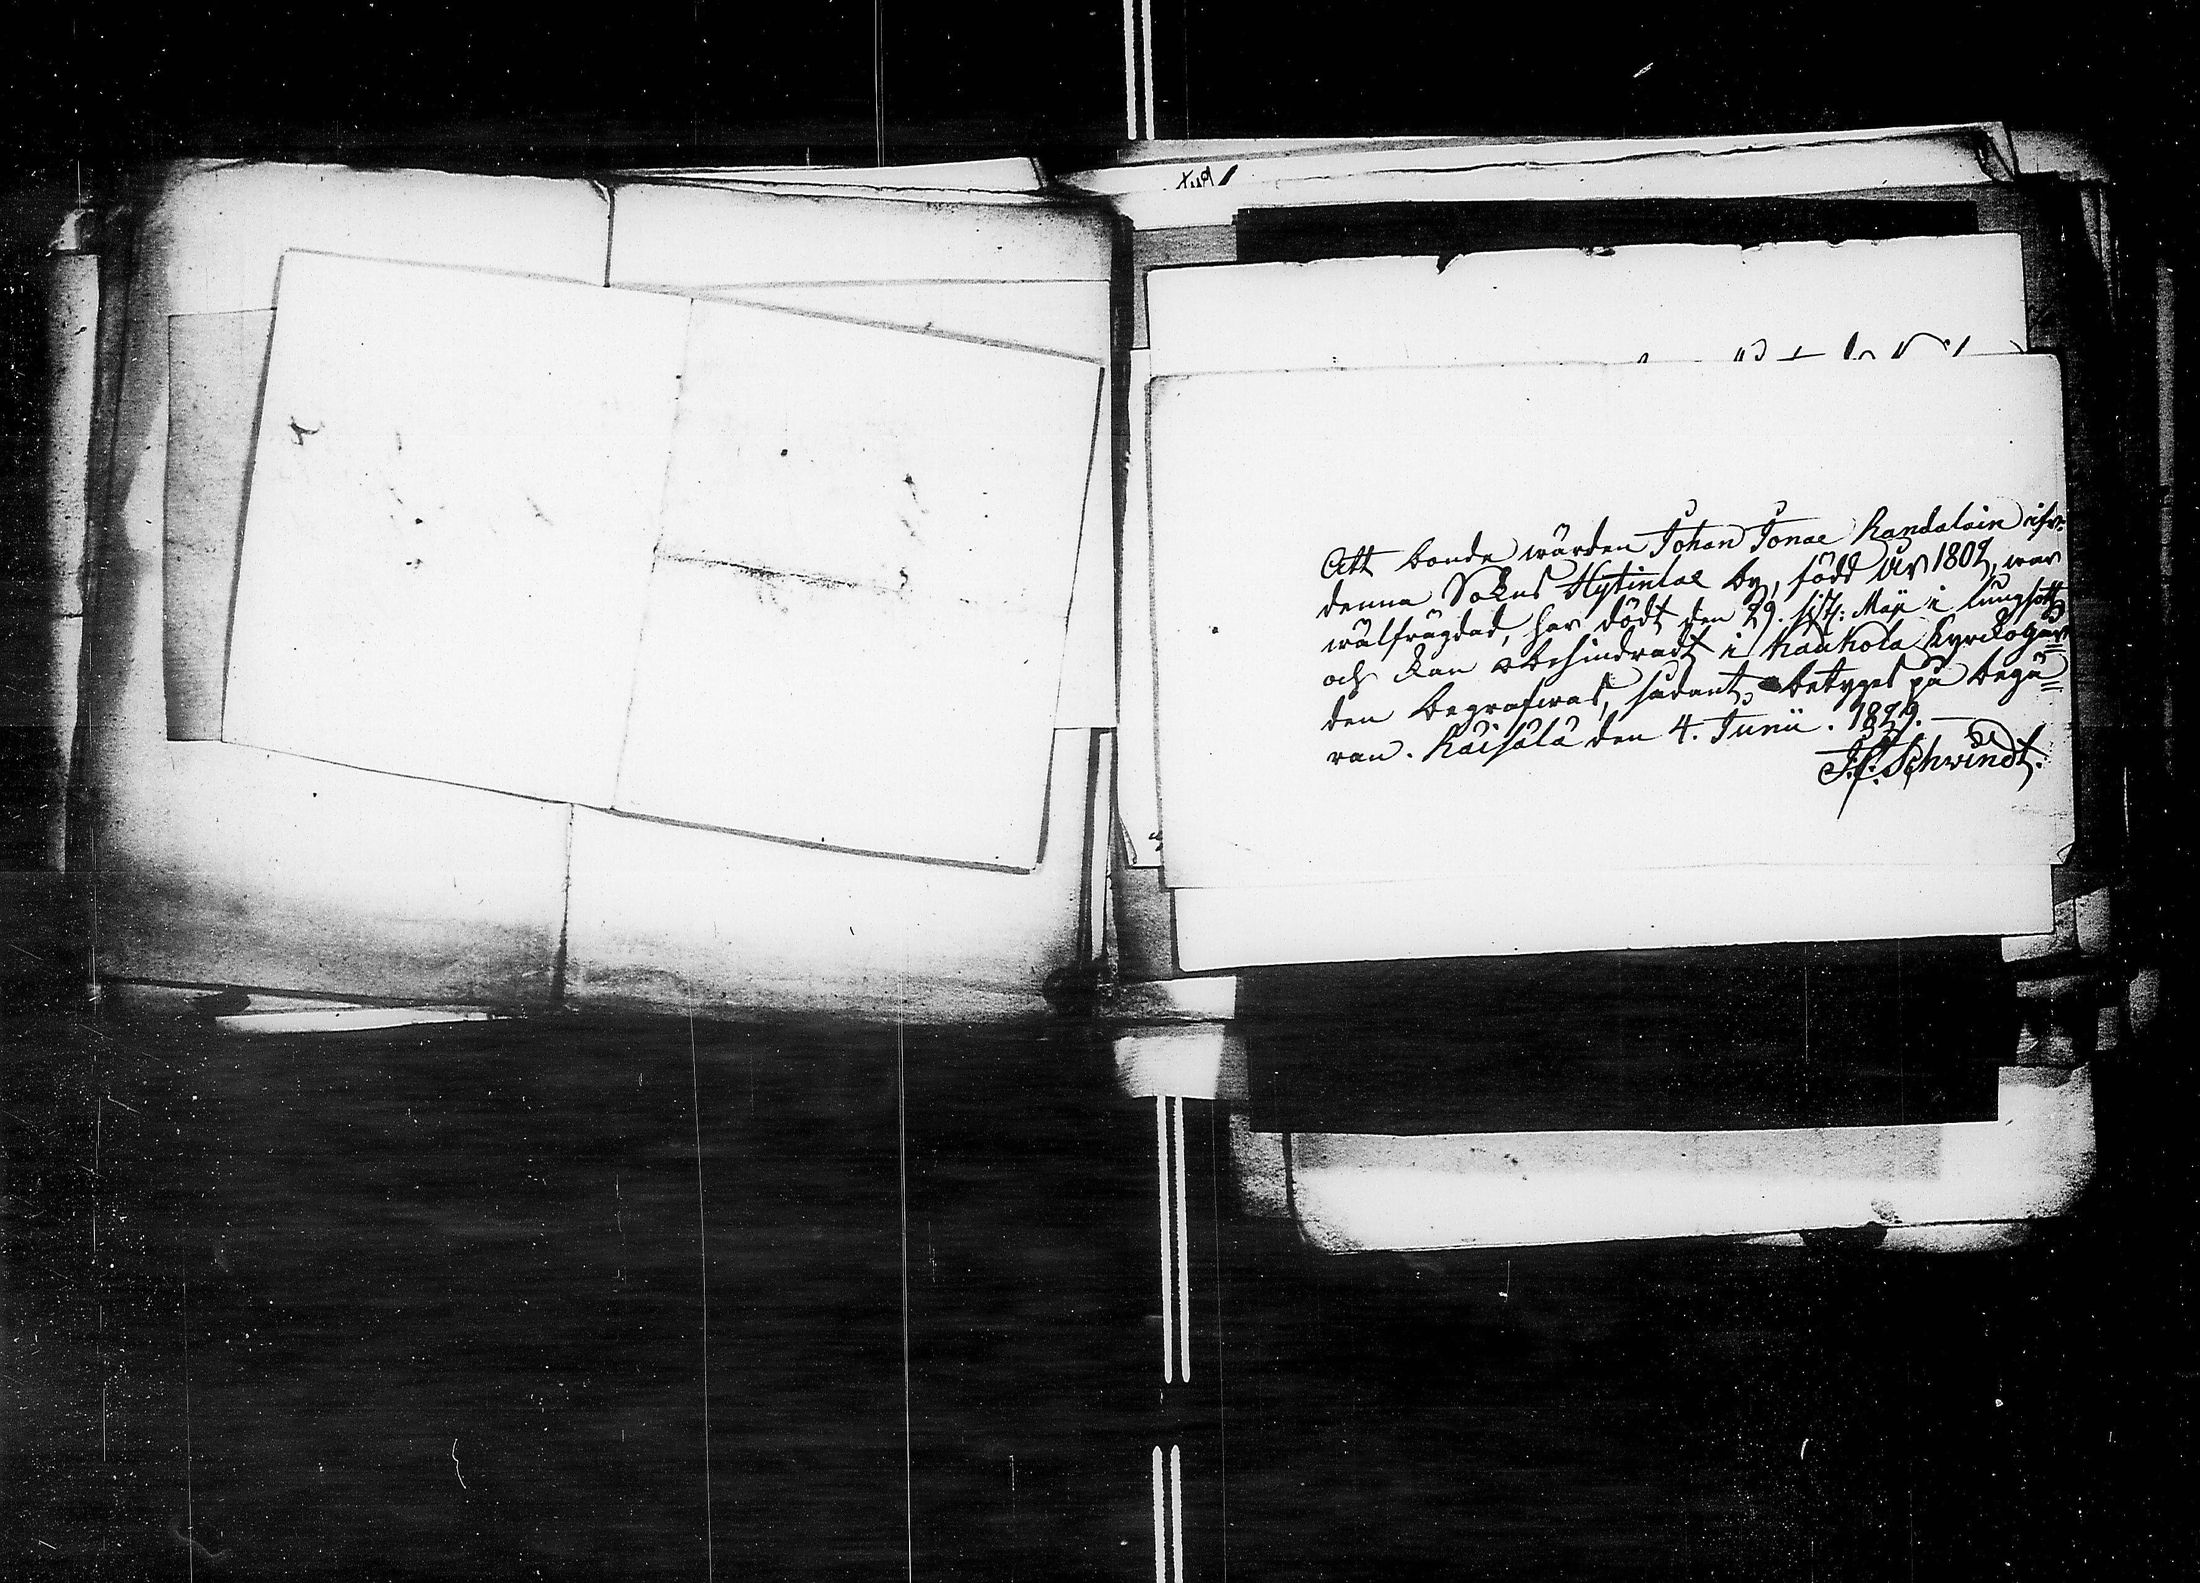 Att bonde wärden Johan Jonae Kandalain ifr:
denna Sokns Hytinlae by, född År 1802, war
wälfrägdad, har dödt den 29. sistl: Maji i lungsott
och kan obehindradt i Kaukola kyrkogår=
den begrafwas, sådant betyges på begä=
ran. Räisälä den 4. Junii. 1829.
J. F. Schwindt.